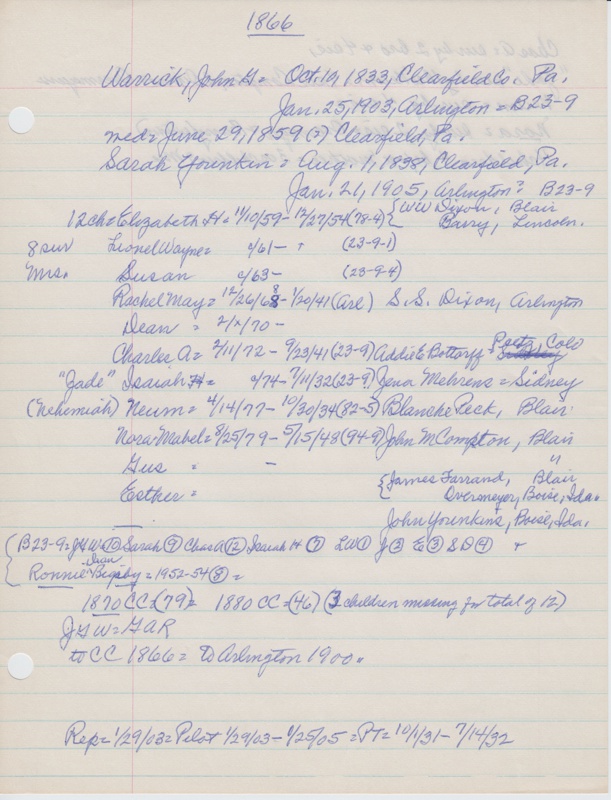 1866
Warrick, John G = Oct. 19, 1833, Clearfield Co. Pa.
Jan. 25, 1903, Arlington = B23-9
med = June 29, 1859 (?) Clearfield, Pa.
Sarah Younkin = Aug. 1, 1838, Clearfield, Pa.
Jan. 21, 1905, Arlington? B23-9
12ch = Elizabeth H = 11/10/59 - 12/27/54 (78-9) { WW Dixon, Blair
Barry, Lincoln.
8 sur Lionel Wayne = c/61 - (23-9-1)
Mrs. Susan c/63 - (23-9-4)
Rachel May = 12/26/68 - 1/20/41 (Arl) S.S. Dixon, Arlington
Dean = 2/x/70 -
Charles A = 2/11/72 - 9/23/41 (23-9) Addie Bottorff = Colo
"Jade" Isaiah H = c/74 - 7/11/32 (23-9) Jena Mehrens = Sidney
(Nehemiah) Neum = 4/14/77 - 10/30/34 (82-5) Blanche Peck, Blair
Nora Mabel = 8/25/79 - 5/15/48 (94-9) John M Compton, Blair
Gus = -
Esther = { James Farrand, Blair "
Overmeyer, Boise, Ida.
John Younkins, Boise, Ida.
( B23-9 = JGW (10) Sarah (9) Chas A (12) Isaiah H (7) LW (1) J (2) E (3) SD (4) +
{ Ronnie Dean Bigsby = 1952-54 (8) =
1870 CC = (79) = 1880 CC = (46) (3 children missing for total of 12)
JGW = GAR
to CC 1866 = to Arlington 1900.
Rep = 1/29/03 = Pilot 1/29/03 - 1/25/05 = PT = 10/1/31 - 7/14/32